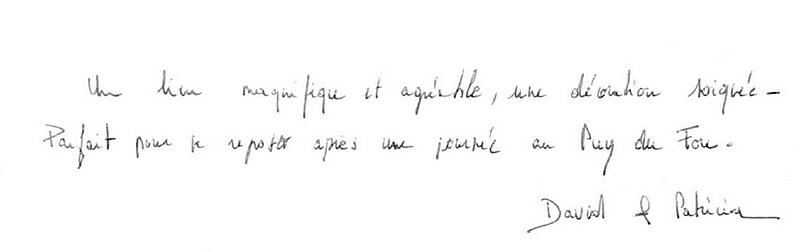 Un lieu magnifique et agréable, une décoration soignée -
Parfait pour se reposer après une journée au Puy du Fou.
David & Patricia